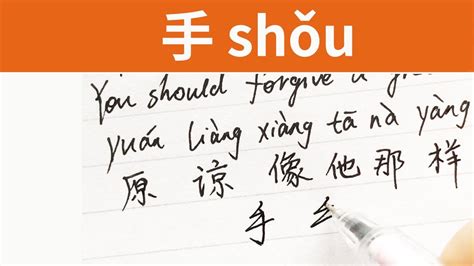 手 shǒu
You should forgive a
yuán liàng xiàng tā nà yàng
原 谅 像 他 那 样
手